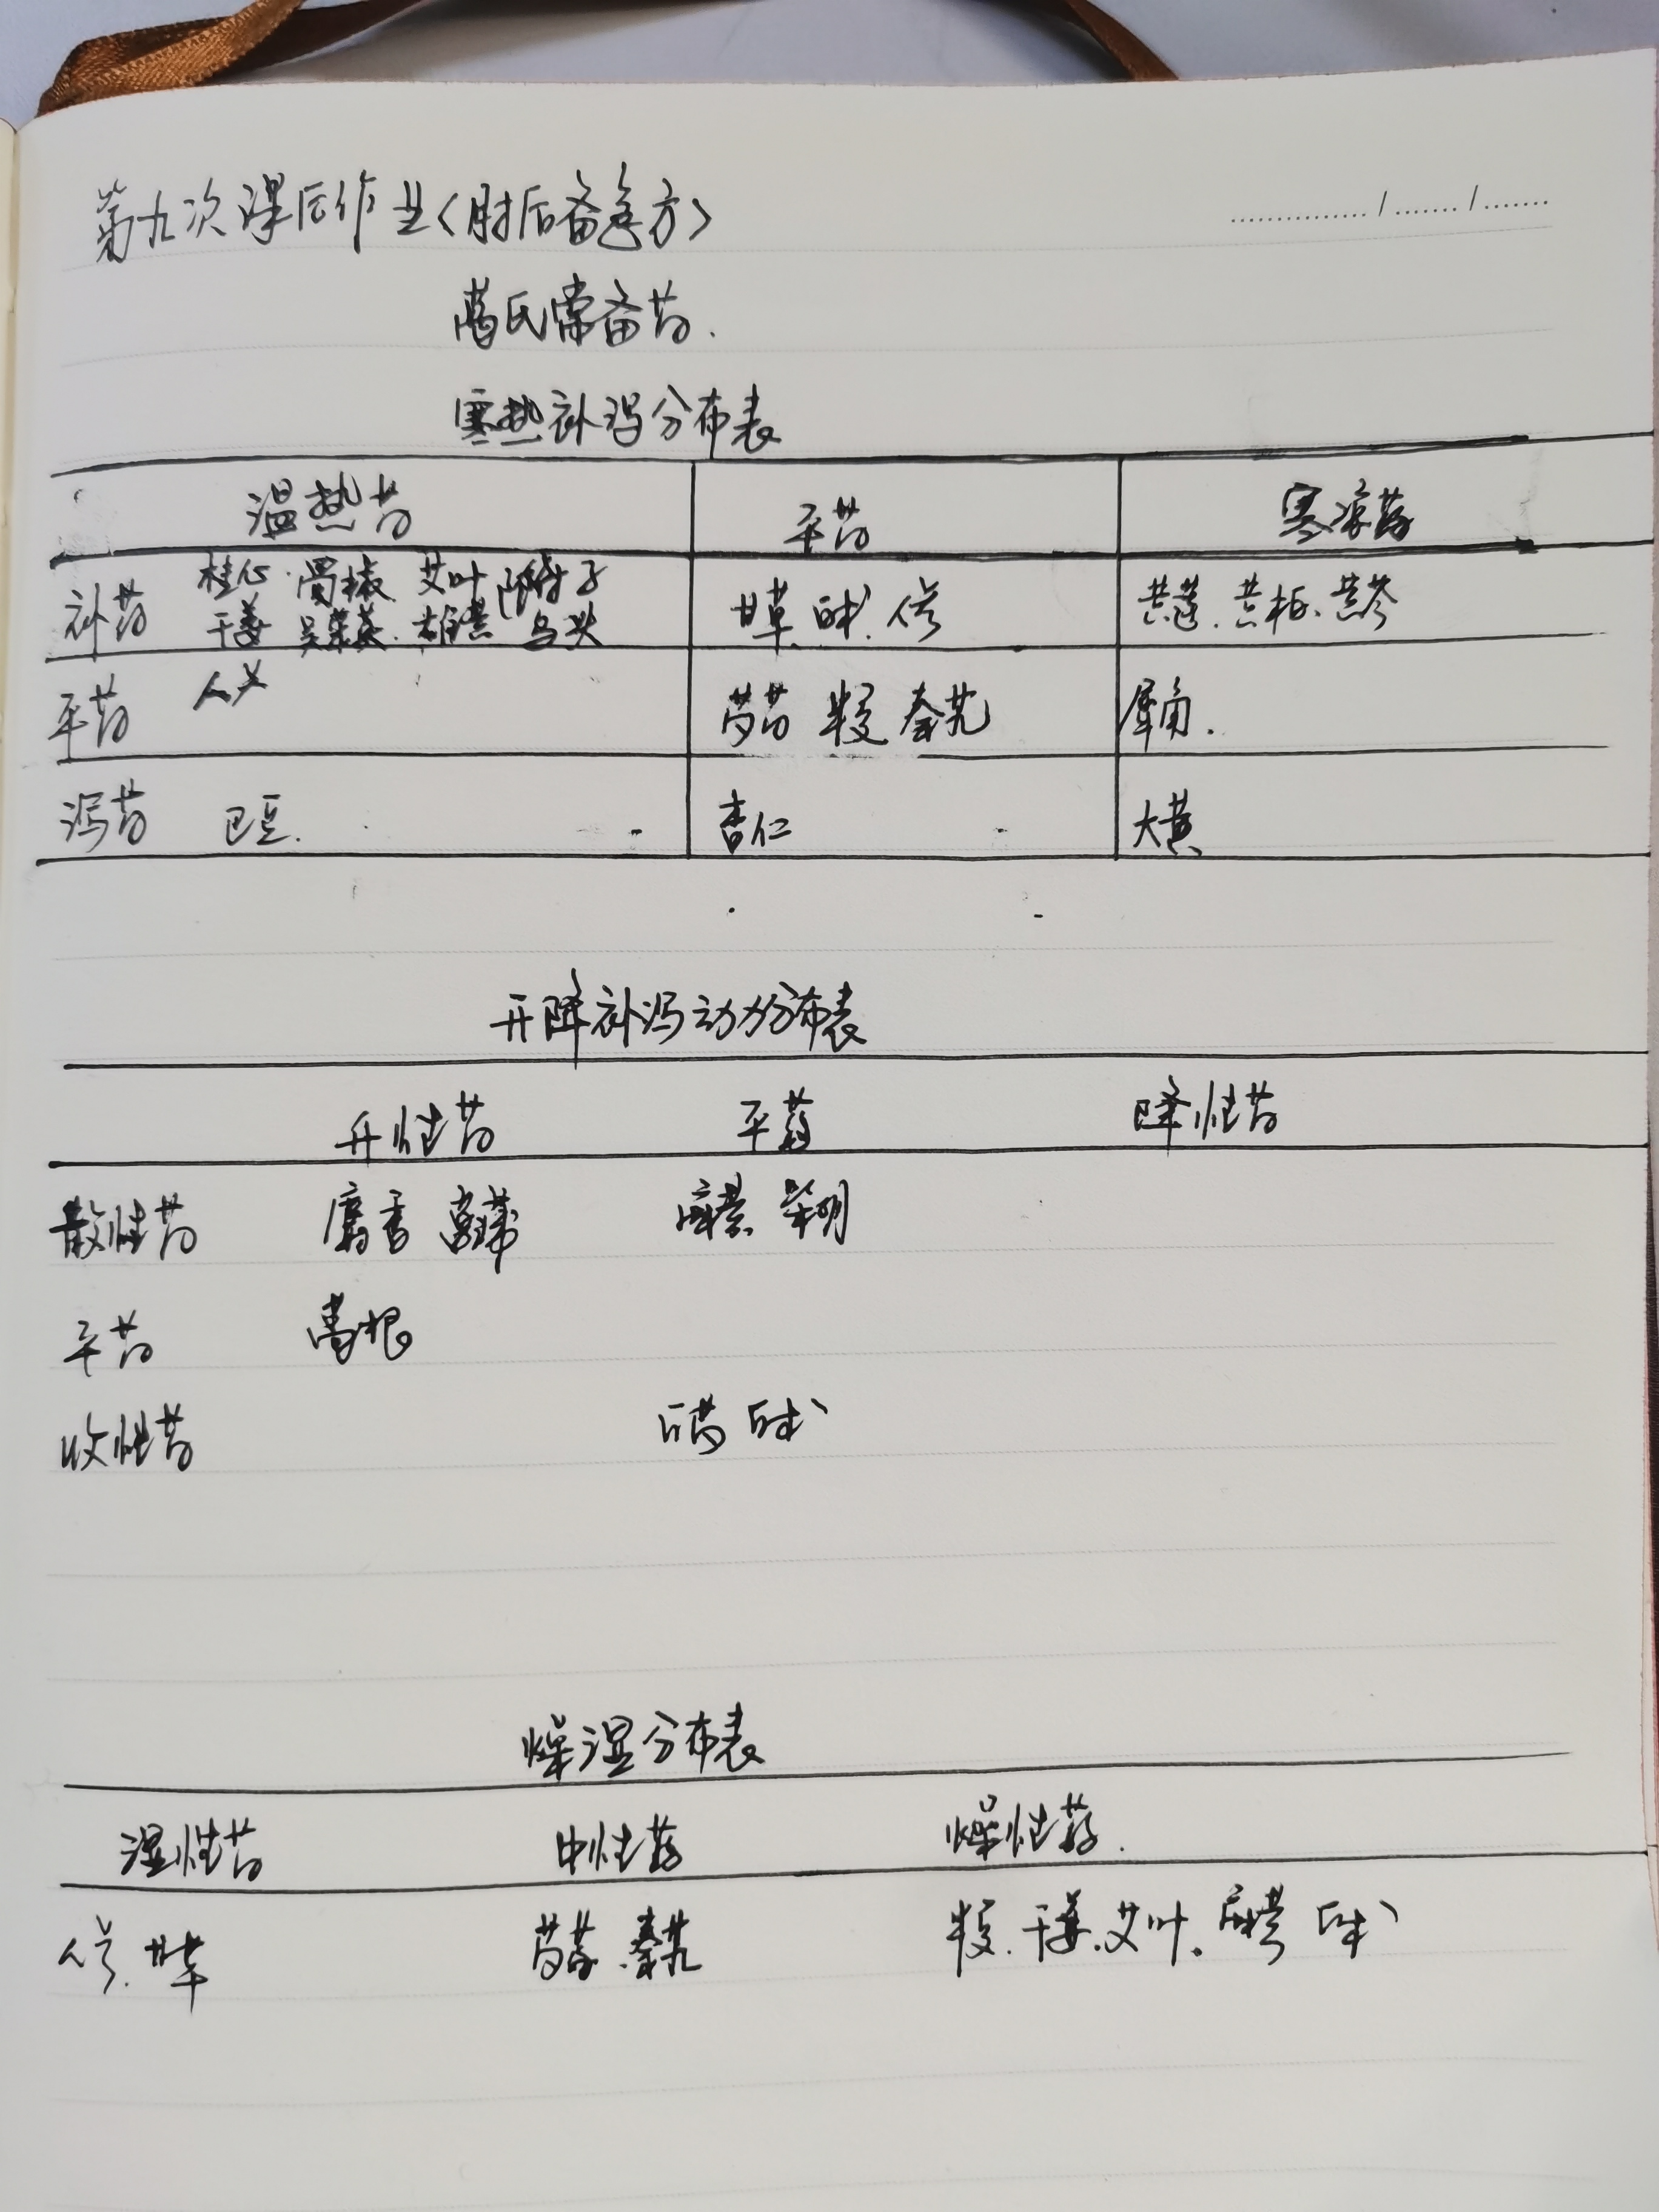 第九次课后作业<肘后备急方>
葛氏常备药.
寒热补泻分布表
温热药 平药 寒凉药
补药 桂心.蜀椒 艾叶 附子 甘草 白术 人参 黄连.黄柏.黄芩
干姜 吴茱萸.雄黄 乌头
平药 芍药 半夏 秦艽 犀角.
泻药 巴豆. 杏仁 大黄
升降补泻动力分布表
升性药 平药 降性药
散性药 麝香 菖蒲 麻黄 柴胡
平药 葛根
收性药 白术
燥湿分布表
湿性药 中性药 燥性药.
人参.甘草 芍药.秦艽 半夏.干姜.艾叶。麻黄 白术